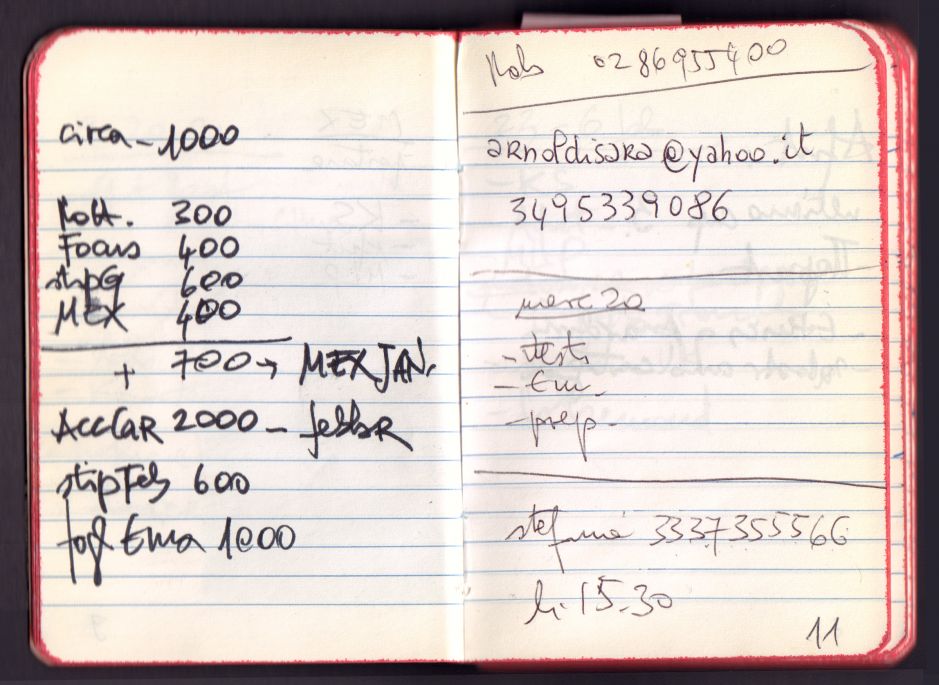 circa - 1000
Robt. 300
Focus 400
stipG 600
MEX 400
+ 700 → MEX JAN.
AccCaR 2000 - febbR
stipFeb 600
Ema 1000
Rob 0286955400
arnoldisara@yahoo.it
3495339086
merc 20
- test
- Em.
- prep.
3337355566
h. 15.30
11